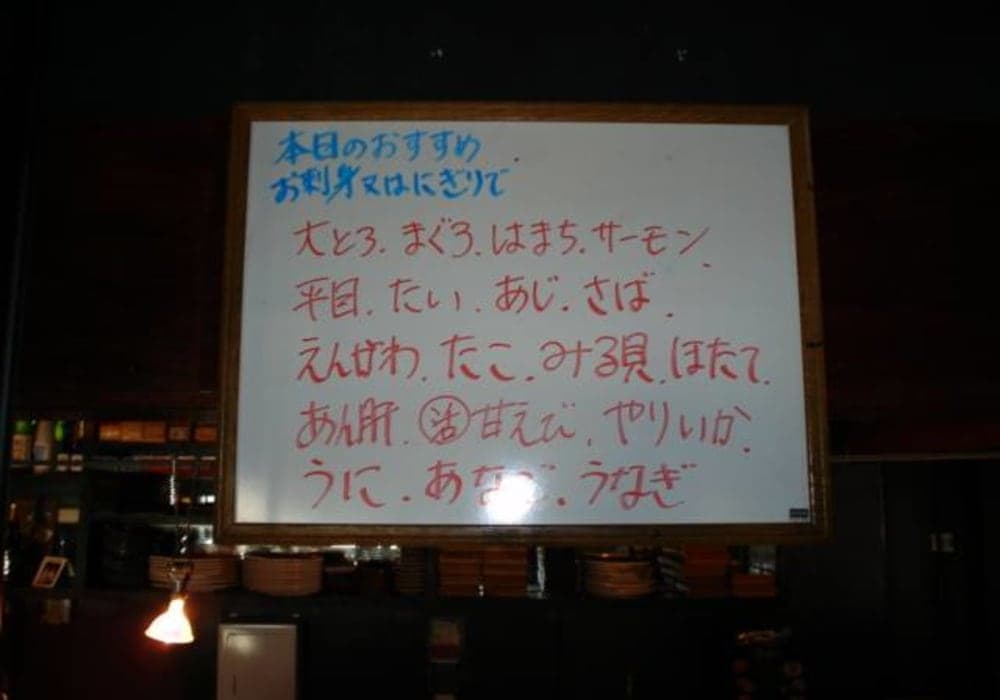 本日のおすすめ
お刺身又はにぎりで
大とろ.まぐろ.はまち.サーモン.
平目.たい.あじ.さば.
えんがわ.たこ.みる貝.ほたて.
あん肝.㊋甘えび.やりいか.
うに.あなご.うなぎ